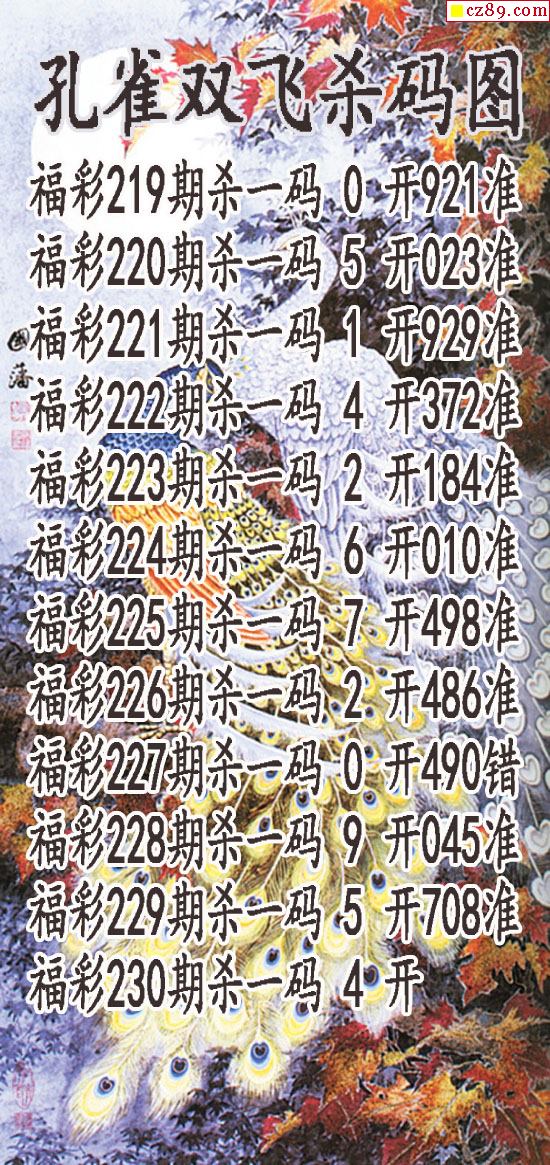 cz89.com
孔雀双飞杀码图
福彩219期杀一码 0 开921准
福彩220期杀一码 5 开023准
福彩221期杀一码 1 开929准
福彩222期杀一码 4 开372准
福彩223期杀一码 2 开184准
福彩224期杀一码 6 开010准
福彩225期杀一码 7 开498准
福彩226期杀一码 2 开486准
福彩227期杀一码 0 开490错
福彩228期杀一码 9 开045准
福彩229期杀一码 5 开708准
福彩230期杀一码 4 开
國
藩